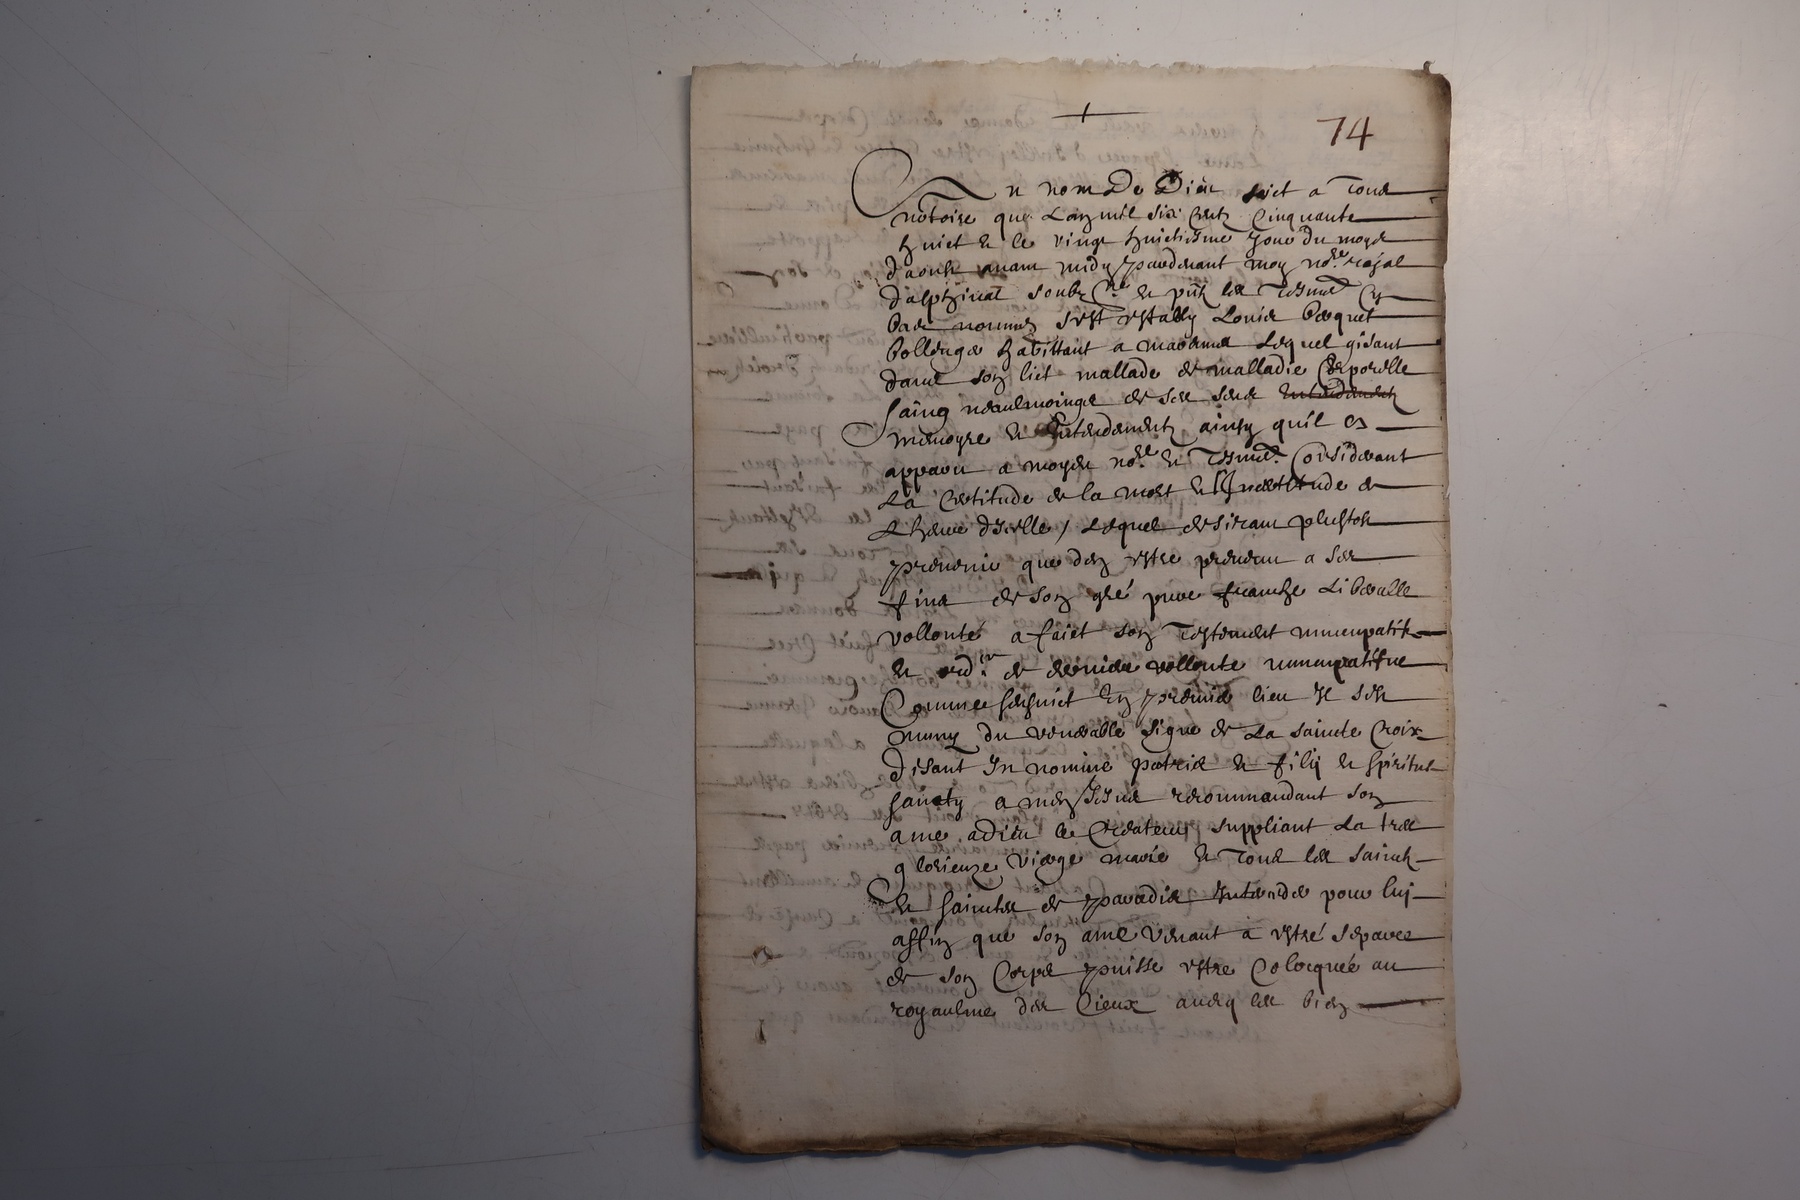 74
Au nom de Dieu soict a tous
notoire que Lan mil six centz cinquante
huict & le vingt huictiesme jour du moys
d'aoust avant midy pardevant moy nore royal
dalphinal soubzne & pntz les tesmes cy
bas nommes s'est estably Louis
habittant a Lequel gisant
dans son lict mallade de malladie corporelle
saing neaulmoings de ses sens entendement
memoyre & entendement ainsy quil es
apparu a moydt nore & tesmes considerant
La certitude de la mort & lincertitude de
Lheure dicelle / Lequel desirant plustost
prevenir que den estre prevenu a ses
fins de son gré pure franche Liberalle
vollonté a faict son testement nuncupatif
& ordre de derniere vollonte nuncupatifve
Comme sensuict En premier lieu il sest
muny du venerable signe de La saincte Croix
disant In nomine patris & filij & spiritus
sancty amen Jesus recommandant son
ame a dieu le Createur suppliant La tres
glorieuze vierge marie & tous les sainctz
& sainctes de paradis Interceder pour luy
affin que son ame venant a estre separee
de son Corps puisse estre Colocquée au
royaulme des Cieux avecq les bien